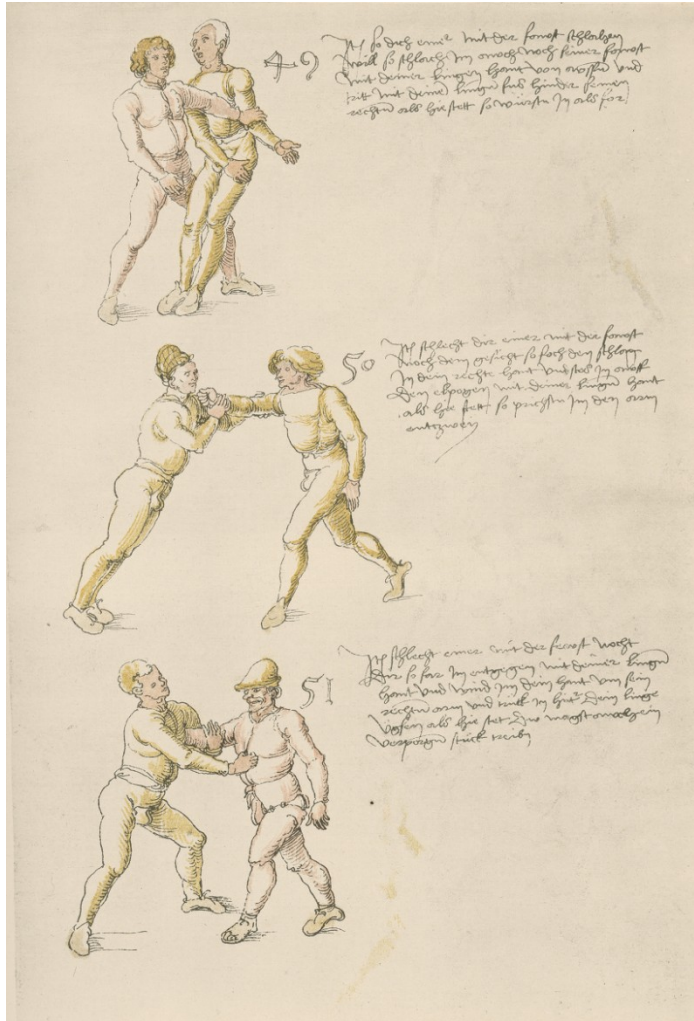 49
Itm so dich einer mit der fowst schlachen
will so schlach Im moch noch seiner fowst
mit deiner lingen hant von
tritt mit deine lingen fus hinder seinen
rechtn als hie stett so würfstu In als for
50
Itm schlecht dir einer mit der fowst
noch dem gesicht so foch den schlag
In dein rechte hant
den elpogen mit deiner lingn hant
als hie stett so prichstu Im den arm
entzwey
51
Itm schlecht einer mit der fewst nocht
dir so far Im entgegen mit deiner lingn
hant vnd wind Im dein hant vm sein
rechtn arm vnd truck In dein linge
vgsen als hie stet Du magst ein
verporgn stück treibn